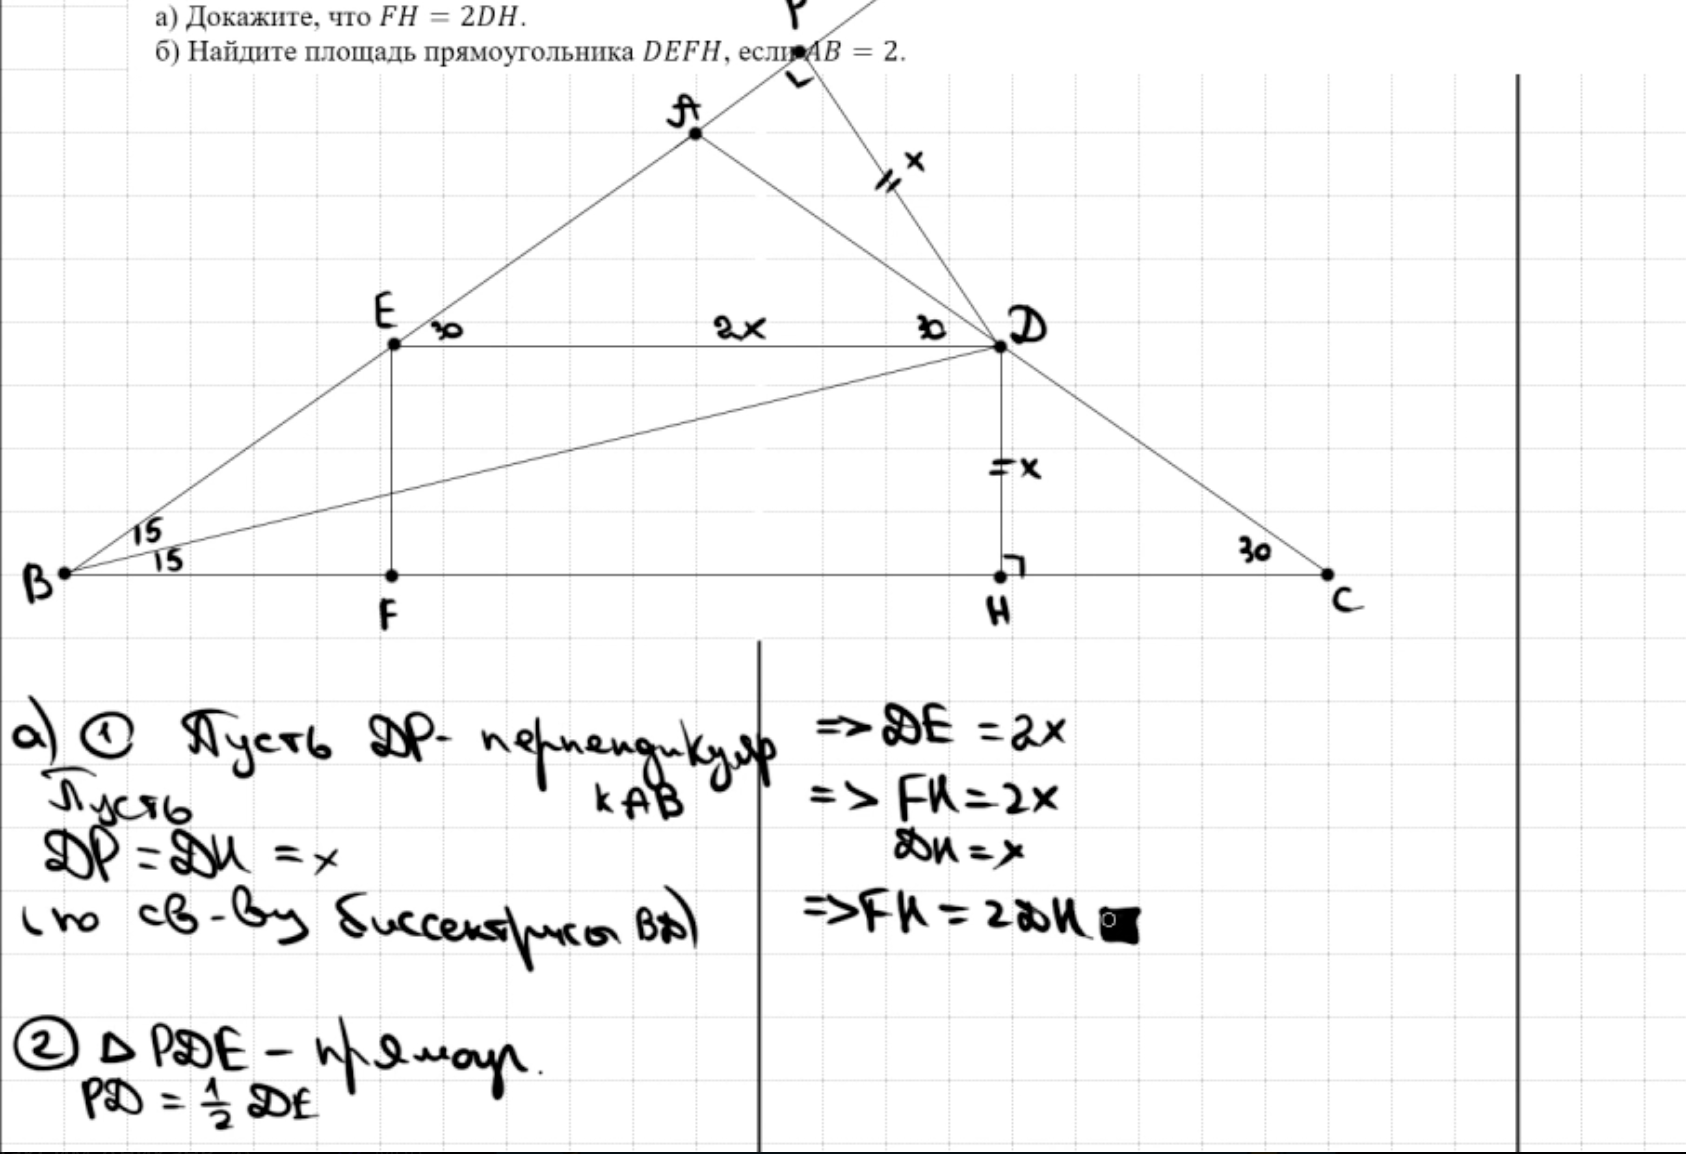 а) Докажите, что FH = 2DH.
б) Найдите площадь прямоугольника DEFH, если AB = 2.
P
A
x
E
30
2x
30
D
= x
15
15
30
B
F
H
C
а) ① Пусть DP - перпендикуляр
к AB
Пусть
DP = DH = x
(по св-ву биссектрисы BD)
② △ PDE - прямоуг.
PD = 1/2 DE
=> DE = 2x
=> FH = 2x
DH = x
=> FH = 2DH